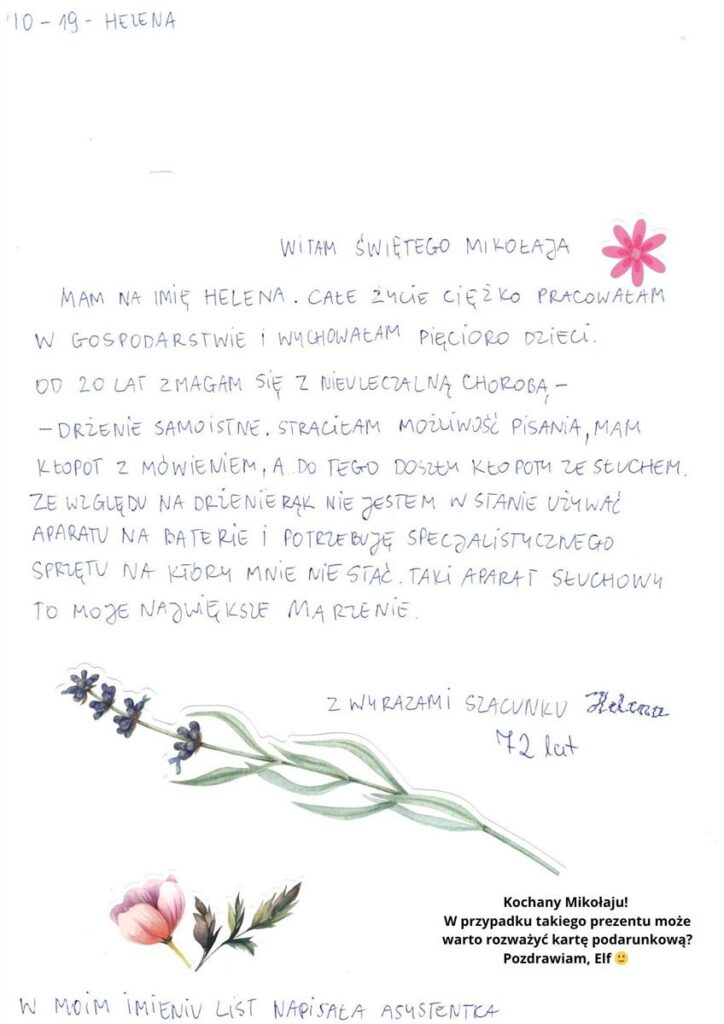 10-19- HELENA
WITAM ŚWIĘTEGO MIKOŁAJA
MAM NA IMIĘ HELENA. CAŁE ŻYCIE CIĘŻKO PRACOWAŁAM
W GOSPODARSTWIE I WYCHOWAŁAM PIĘCIORO DZIECI.
OD 20 LAT ZMAGAM SIĘ Z NIEULECZALNĄ CHOROBĄ -
- DRŻENIE SAMOISTNE. STRACIŁAM MOŻLIWOŚĆ PISANIA, MAM
KŁOPOT Z MÓWIENIEM, A DO TEGO DOSZŁY KŁOPOTY ZE SŁUCHEM.
ZE WZGLĘDU NA DRŻENIE RĄK NIE JESTEM W STANIE UŻYWAĆ
APARATU NA BATERIE I POTRZEBUJĘ SPECJALISTYCZNEGO
SPRZĘTU NA KTÓRY MNIE NIE STAĆ. TAKI APARAT SŁUCHOWY
TO MOJE NAJWIĘKSZE MARZENIE.
Z WYRAZAMI SZACUNKU Helena
72 lat
Kochany Mikołaju!
W przypadku takiego prezentu może
warto rozważyć kartę podarunkową?
Pozdrawiam, Elf 🙂
W MOIM IMIENIU LIST NAPISAŁA ASYSTENTKA